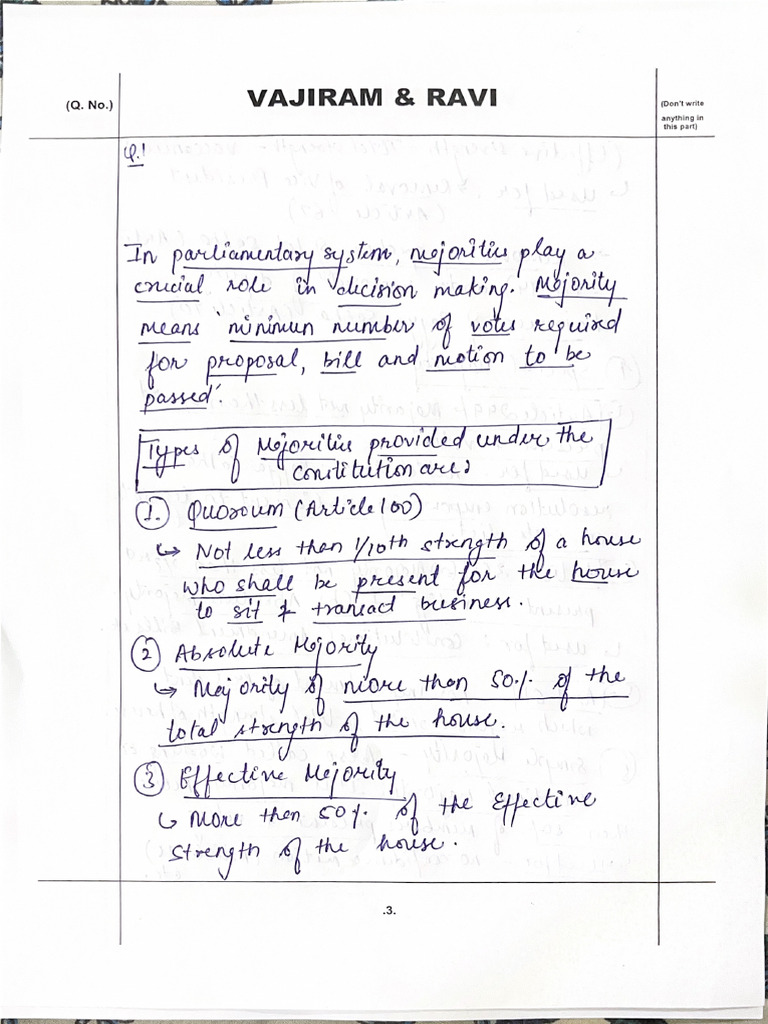 (Q. No.)
VAJIRAM & RAVI
(Don't write
anything in
this part)
Q.1
In parliamentary system, majorities play a
crucial role in decision making. Majority
means 'minimun number of votes required
for proposal, bill and motion to be
passed'.
Types of Majorities provided under the
Constitution are:
1. Quoroum (Article 100)
↳ Not less than 1/10th strength of a house
who shall be present for the house
to sit & transact business.
2 Absolute Majority
↳ Majority of more than 50% of the
total strength of the house.
3 Effective Majority
↳ More than 50% of the Effective
strength of the house.
.3.